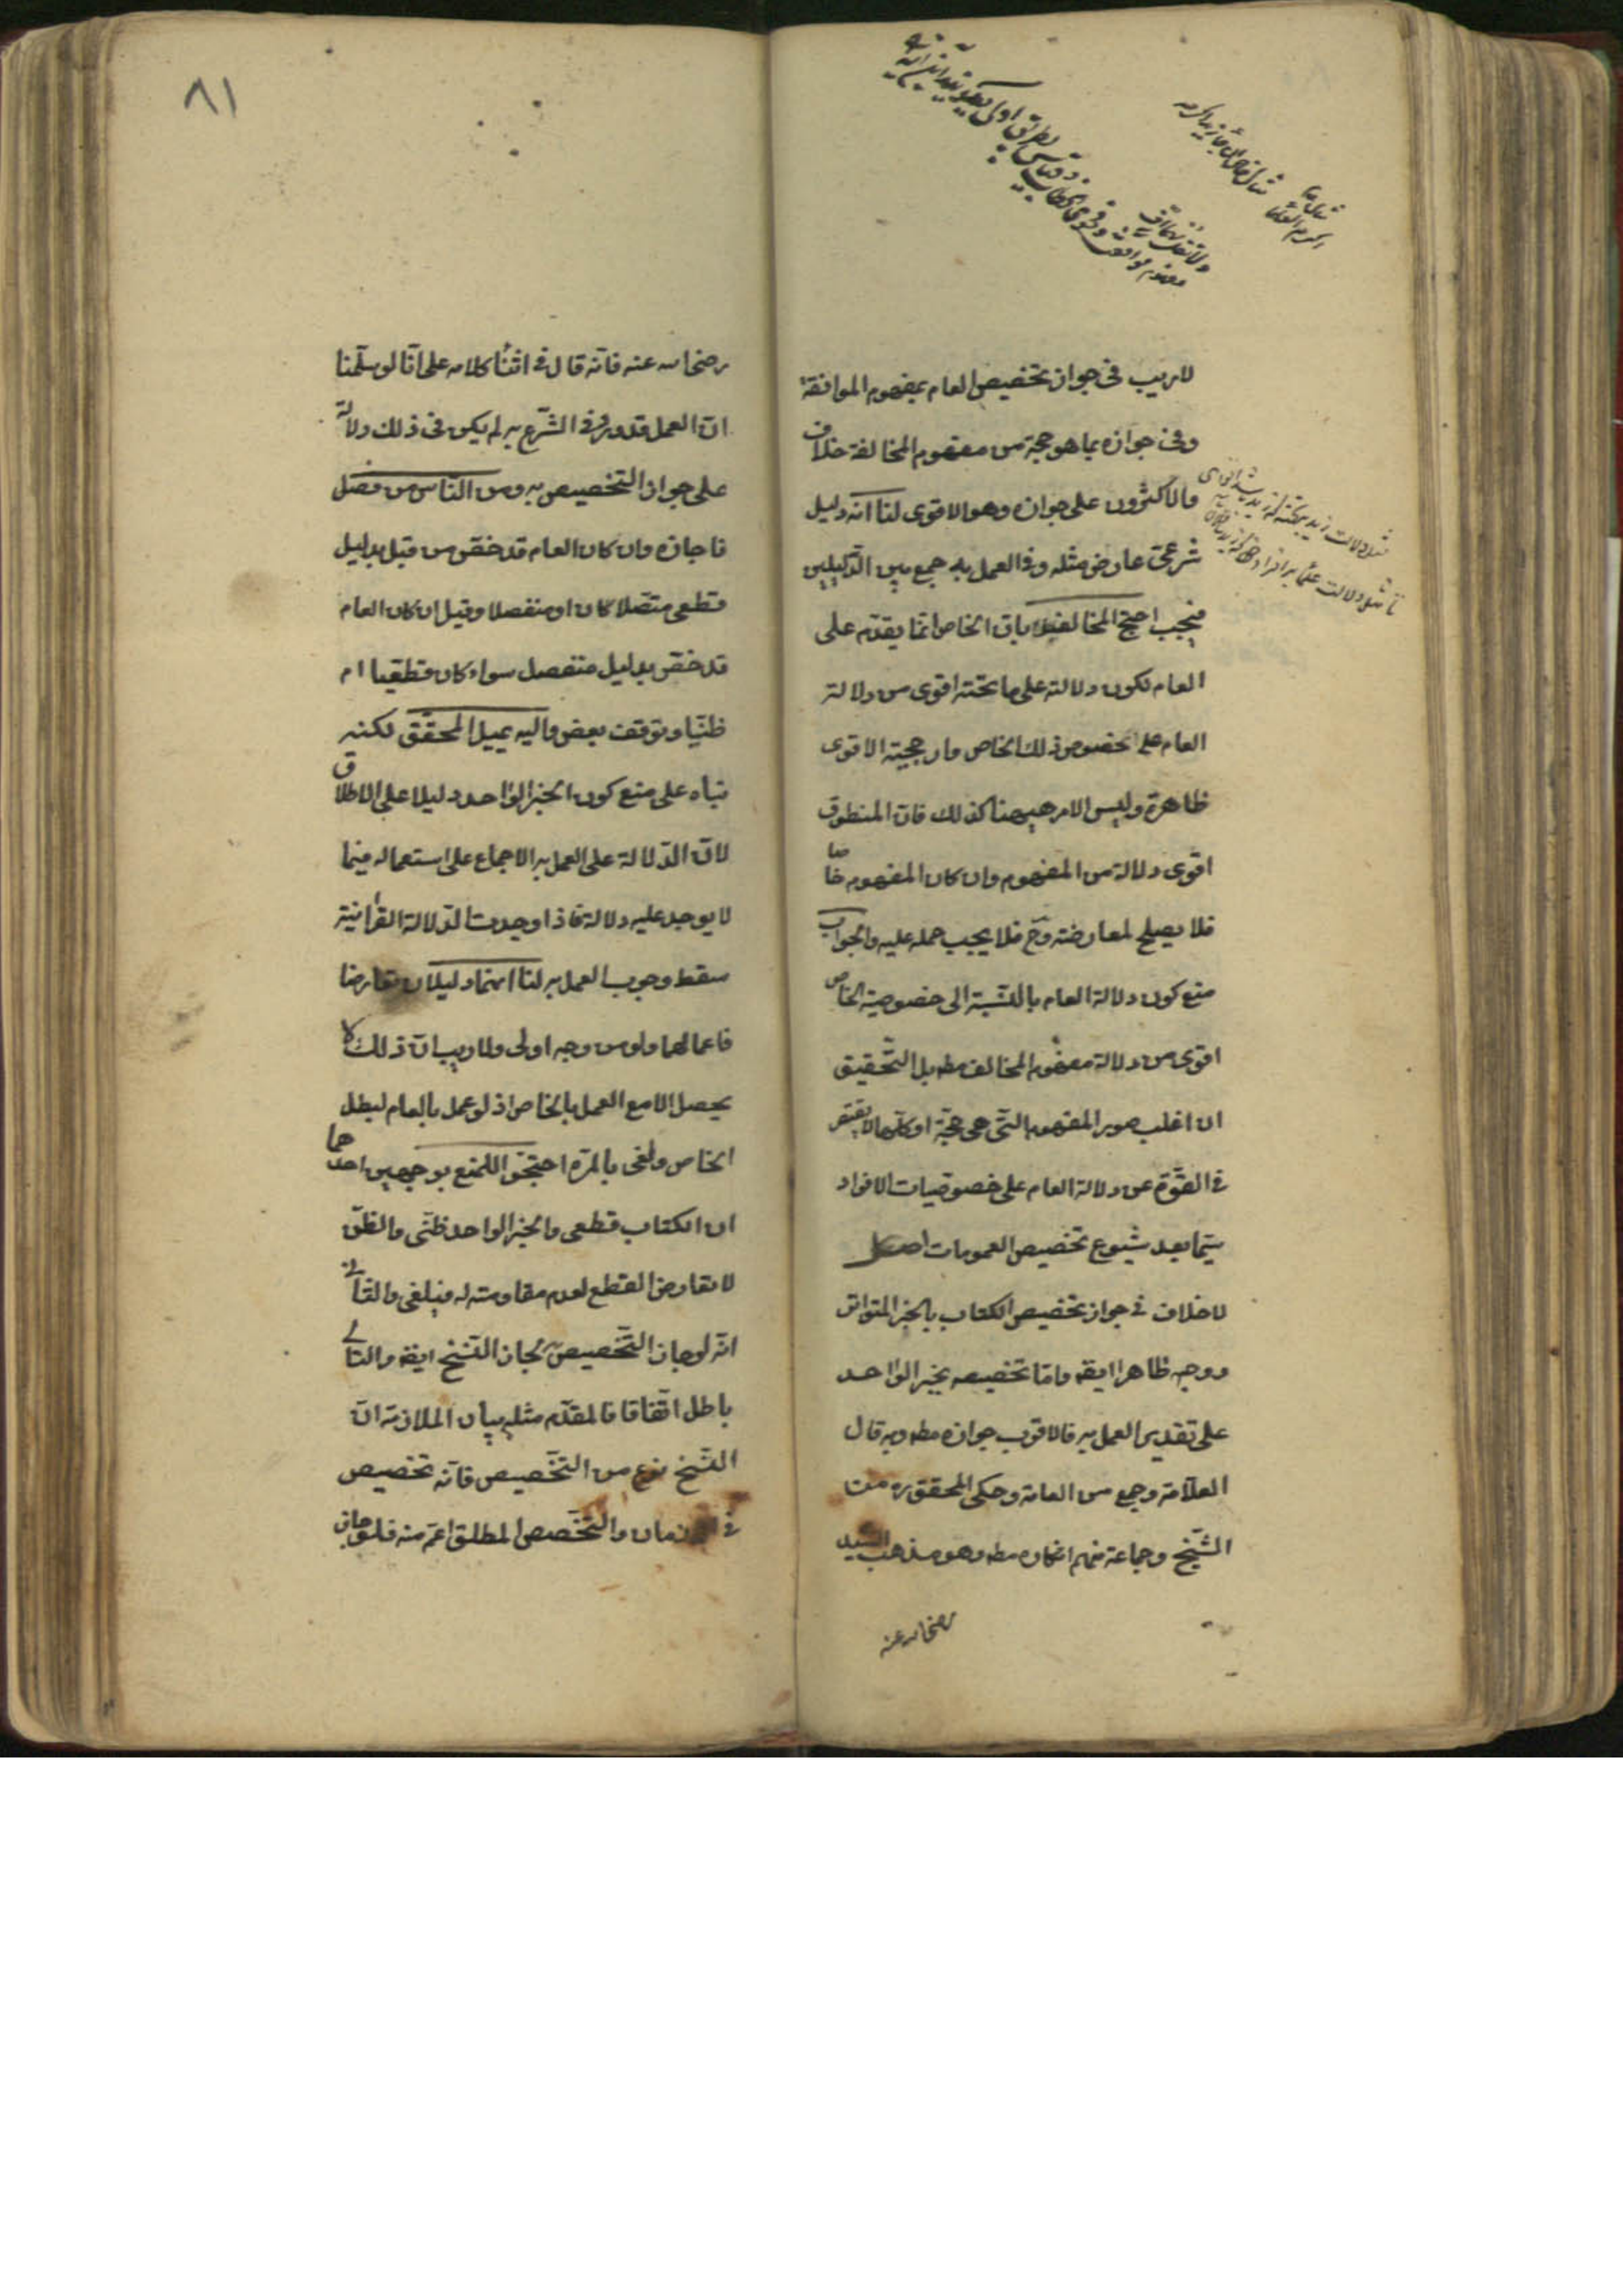 لا ريب في جواز تخصيص العام بمفهوم الموافقة
وفي جوازه بما هو حجة من مفهوم المخالفة خلاف
والاكثرون على جوازه وهو الاقوى لنا انه دليل
شرعىّ عارض مثله وفى العمل به جمع بين الدّليلين
فيجب احتج المخالف بان الخاص انّما يقدّم على
العام لكون دلالته على ما تحته اقوى من دلالة
العام على خصوص ذلك الخاص وارجحيّة الاقوى
ظاهرة وليس الامر هيهنا كذلك فانّ المنطوق
اقوى دلالة من المفهوم وان كان المفهوم خاصا
فلا يصلح لمعارضته وح فلا يجب حمله عليه والجواب
منع كون دلالة العام بالنّسبة الى خصوصيّة الخاص
اقوى من دلالة مفهوم المخالف مطه بل التّحقيق
ان اغلب صور المفهوم التّى هى حجّة او كلّها لا يقصر
في القوّة عن دلالة العام على خصوصيّات الافراد
سيّما بعد شيوع تخصيص العمومات اصل
لا خلاف في جواز تخصيص الكتاب بالخبر المتواتر
ووجهه ظاهر ايضه وامّا تخصيصه بخبر الواحد
على تقدير العمل به فالاقرب جوازه مطه وبه قال
العلاّمة وجمع من العامة وحكى المحقق ره من
الشّيخ وجماعة منهم انكاره مطه وهو مذهب السّيد
رضى الله عنه
٨١
رضى الله عنه فانّه قال في اثناء كلامه على انّا لو سلّمنا
انّ العمل قد ورد في الشّرع به لم يكن في ذلك دلالة
على جواز التّخصيص به ومن النّاس من فصّل
فاجازه وان كان العام قد خصّ من قبل بدليل
قطعى متّصلا كان او منفصلا وقيل ان كان العام
قد خصّ بدليل منفصل سواء كان قطعيا ام
ظنّيا وتوقف بعض واليه يميل المحقّق لكنّه
بناه على منع كون الخبر الواحد دليلا على الاطلاق
لانّ الدّلالة على العمل به الاجماع على استعماله فيما
لا يوجد عليه دلالة فاذا وجدت الدّلالة القرآنيّة
سقط وجوب العمل به لنا انهما دليلان تعارضا
فاعمالهما ولو من وجه اولى ولا ريب انّ ذلك لا
يحصل الا مع العمل بالخاص اذ لو عمل بالعام لبطل
الخاص ولغى بالمرّة احتجّوا للمنع بوجهين احدهما
ان الكتاب قطعى والخبر الواحد ظنّى والظّن
لا يعارض القطع لعدم مقاومته له فيلغى والثّانى
انّه لو جاز التّخصيص به لجاز النّسخ ايضه والتّالى
باطل اتّفاقا فالمقدّم مثله بيان الملازمة انّ
النّسخ نوع من التّخصيص فانّه تخصيص
في الازمان والتّخصص المطلق اعمّ منه فلو جاز